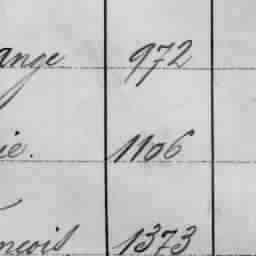 ange 972
ie. 1106
nçois 1373